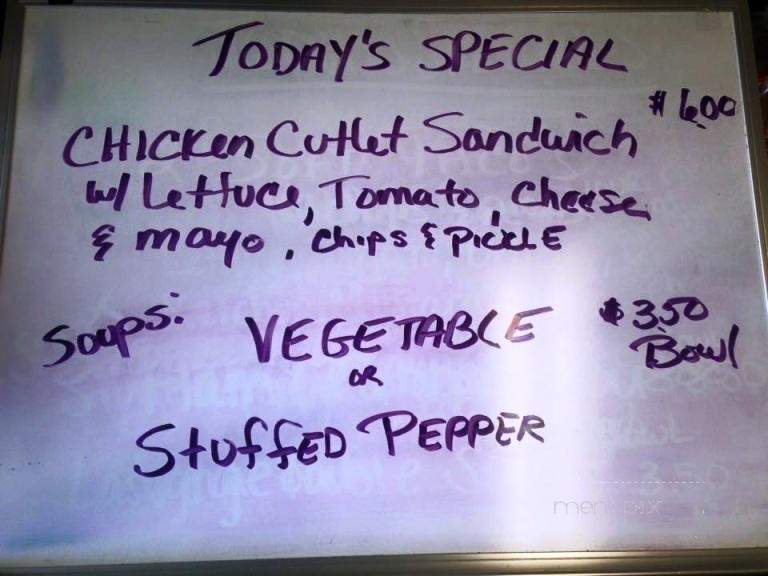 TODAY'S SPECIAL
$6.00
CHICKEN CUTLET SANDWICH
W/ LETTUCE, TOMATO, CHEESE,
& MAYO, CHIPS & PICKLE
SOUPS: VEGETABLE $3.50
OR BOWL
STUFFED PEPPER
menupix